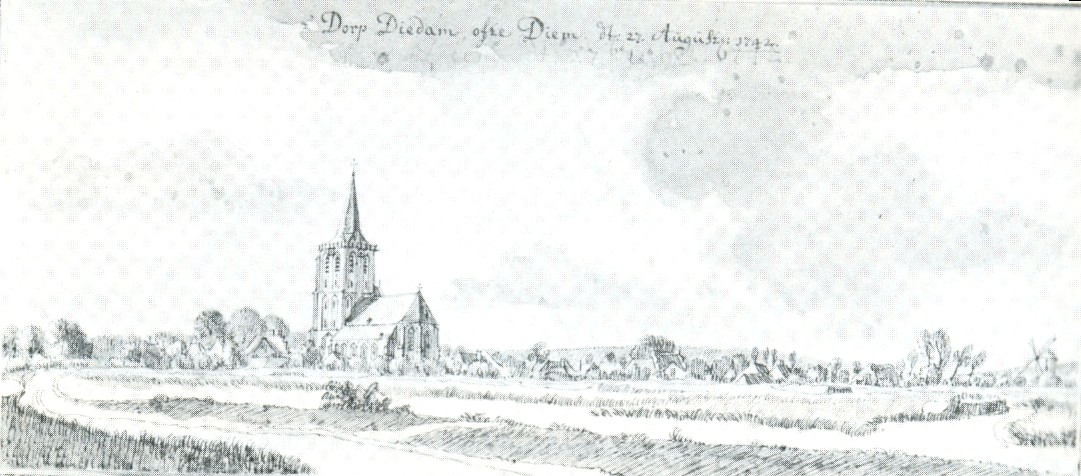 't Dorp Diedam ofte Diem dt. 27 Augusty 1742.